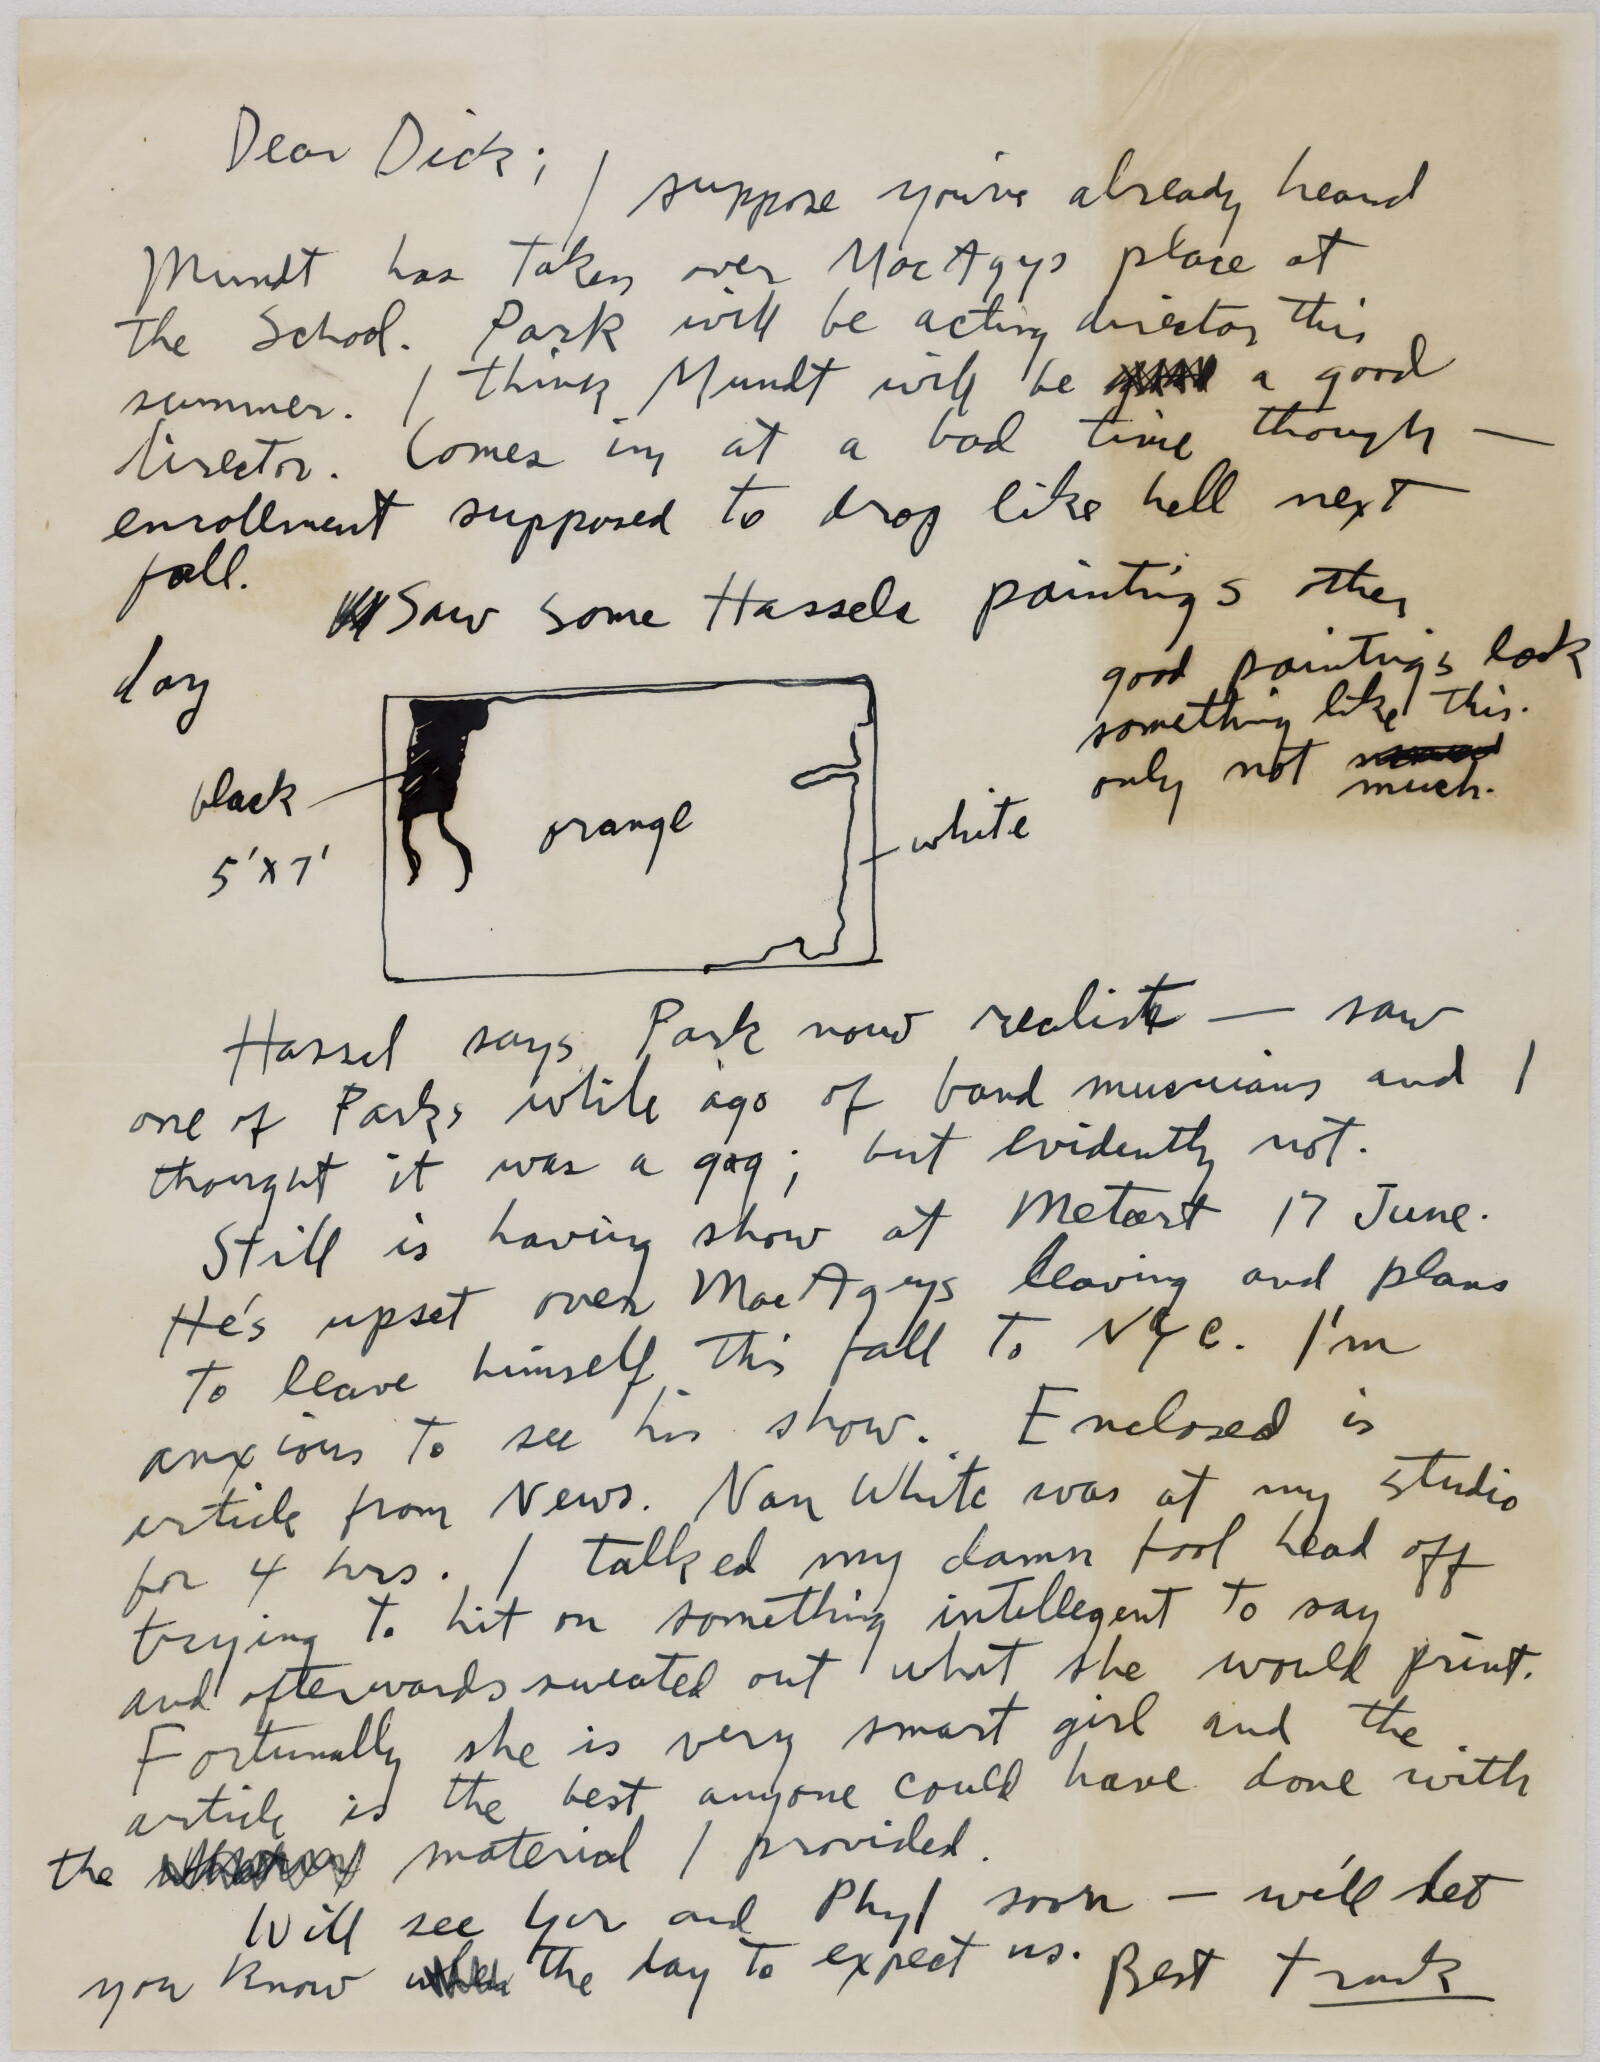 Dear Dick; I suppose you've already heard
Mundt has taken over MacAgys place at
the School. Park will be acting director this
summer. I think Mundt will be a good
director. Comes in at a bad time though —
enrollment supposed to drop like hell next
fall.
Saw some Hassels paintings other
day
good paintings look
something like this.
only not
much.
black
5'x7'
orange
white
Hassel says Park now realist — saw
one of Parks while ago of band musicians and I
thought it was a gag; but evidently not.
Still is having show at Metart 17 June.
He's upset over MacAgys leaving and plans
to leave himself this fall to NYC. I'm
anxious to see his show. Enclosed is
article from News. Nan White was at my studio
for 4 hrs. I talked my damn fool head off
trying to hit on something intellegent to say
and afterwards sweated out what she would print.
Fortunally she is very smart girl and the
article is the best anyone could have done with
the material I provided.
Will see you and Phyl soon — will let
you know the day to expect us. Best